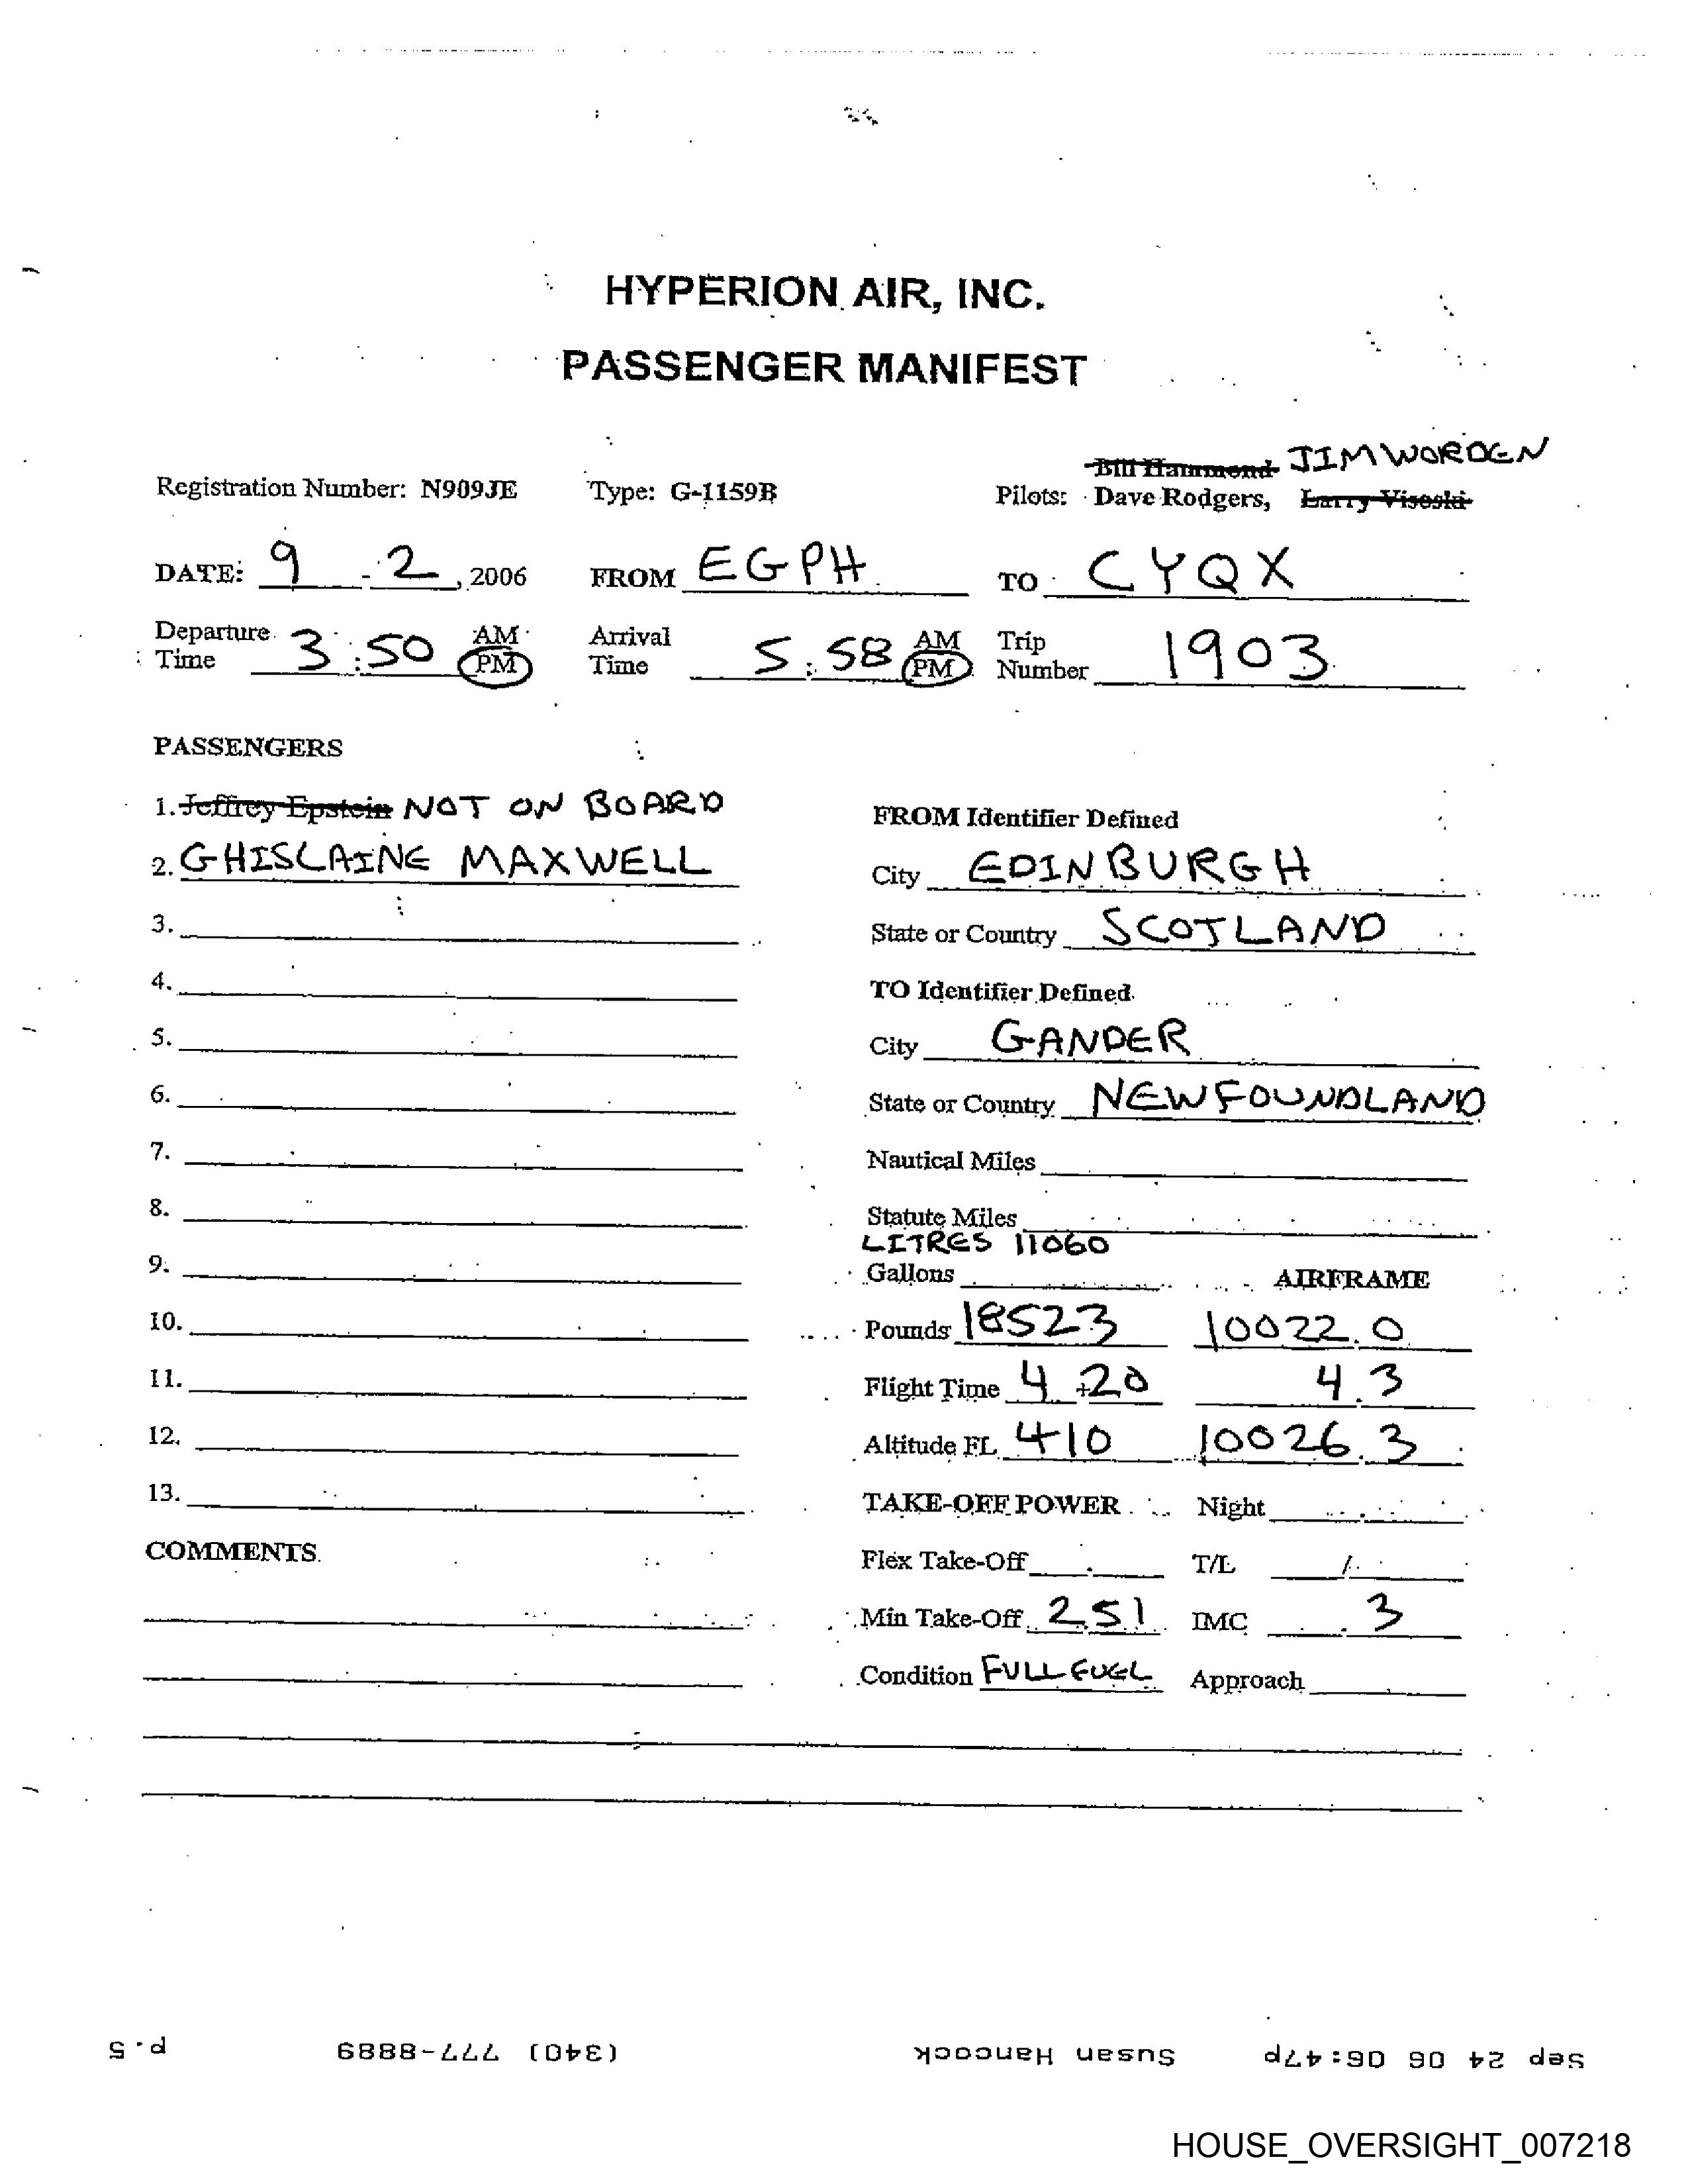 HYPERION AIR, INC.
PASSENGER MANIFEST
Bill Hammond JIM WORDEN
Registration Number: N909JE Type: G-1159B Pilots: Dave Rodgers, Larry Visoski
DATE: 9 - 2, 2006 FROM EGPH TO CYQX
Departure Time 3:50 AM PM Arrival Time 5:58 AM PM Trip Number 1903
PASSENGERS
1. Jeffrey Epstein NOT ON BOARD
2. GHISLAINE MAXWELL
3.
4.
5.
6.
7.
8.
9.
10.
11.
12.
13.
COMMENTS
FROM Identifier Defined
City EDINBURGH
State or Country SCOTLAND
TO Identifier Defined
City GANDER
State or Country NEWFOUNDLAND
Nautical Miles
Statute Miles
LITRES 11060
Gallons AIRFRAME
Pounds 18523 10022.0
Flight Time 4+20 4.3
Altitude FL 410 10026.3
TAKE-OFF POWER Night
Flex Take-Off . T/L /
Min Take-Off 2.51 IMC .3
Condition FULL FUEL Approach
Sep 24 06 06:47p Susan Hancock (340) 777-8889 p.5
HOUSE_OVERSIGHT_007218